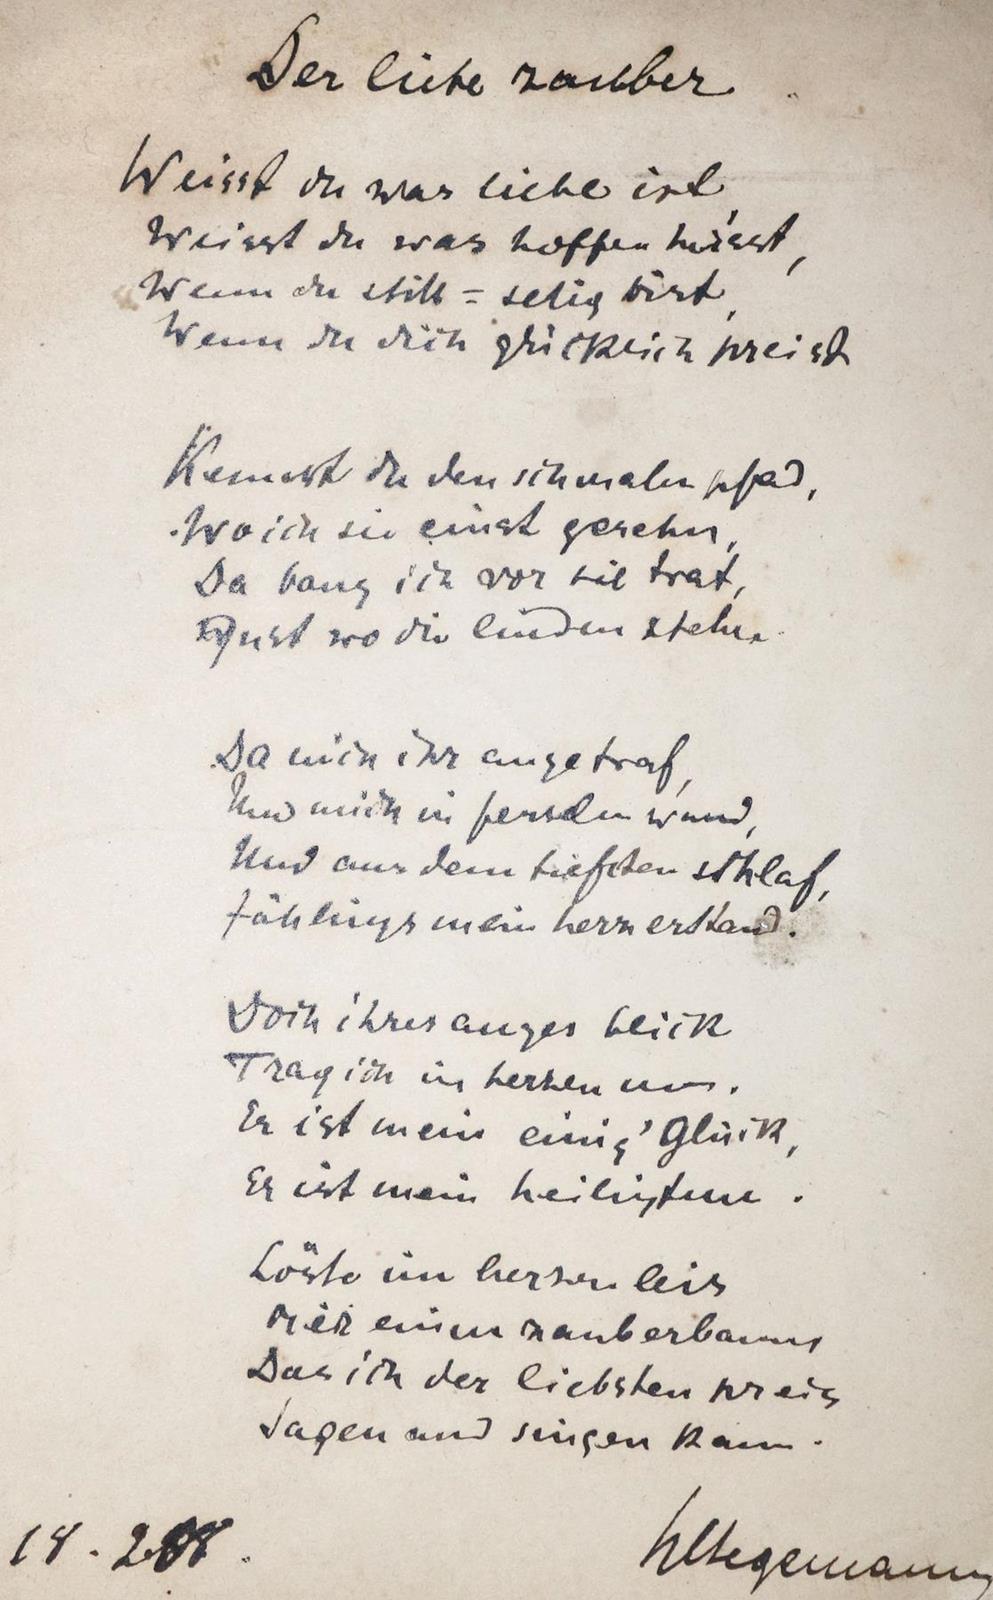 Der liebe zauber
Weisst du was liebe ist,
Weisst du was hoffen heisst,
Wenn du still = selig bist,
Wenn du dich glücklich preist
Kennst du den schmalen pfad,
Wo ich sie einst gesehn,
Da bang ich vor sie trat,
Just wo die linden stehn.
Da mich ihr auge traf,
Und mich in fesseln wand,
Und aus dem tiefsten schlaf,
Jählings mein herz erstand.
Doch ihres auges blick
Trag ich im herzen um.
Er ist mein einig' Glück,
Er ist mein heiligtum.
Löste im herzen leis
mir einen zauberbann
Das ich der liebsten preis
Sagen und singen kann.
18.
Hegemann